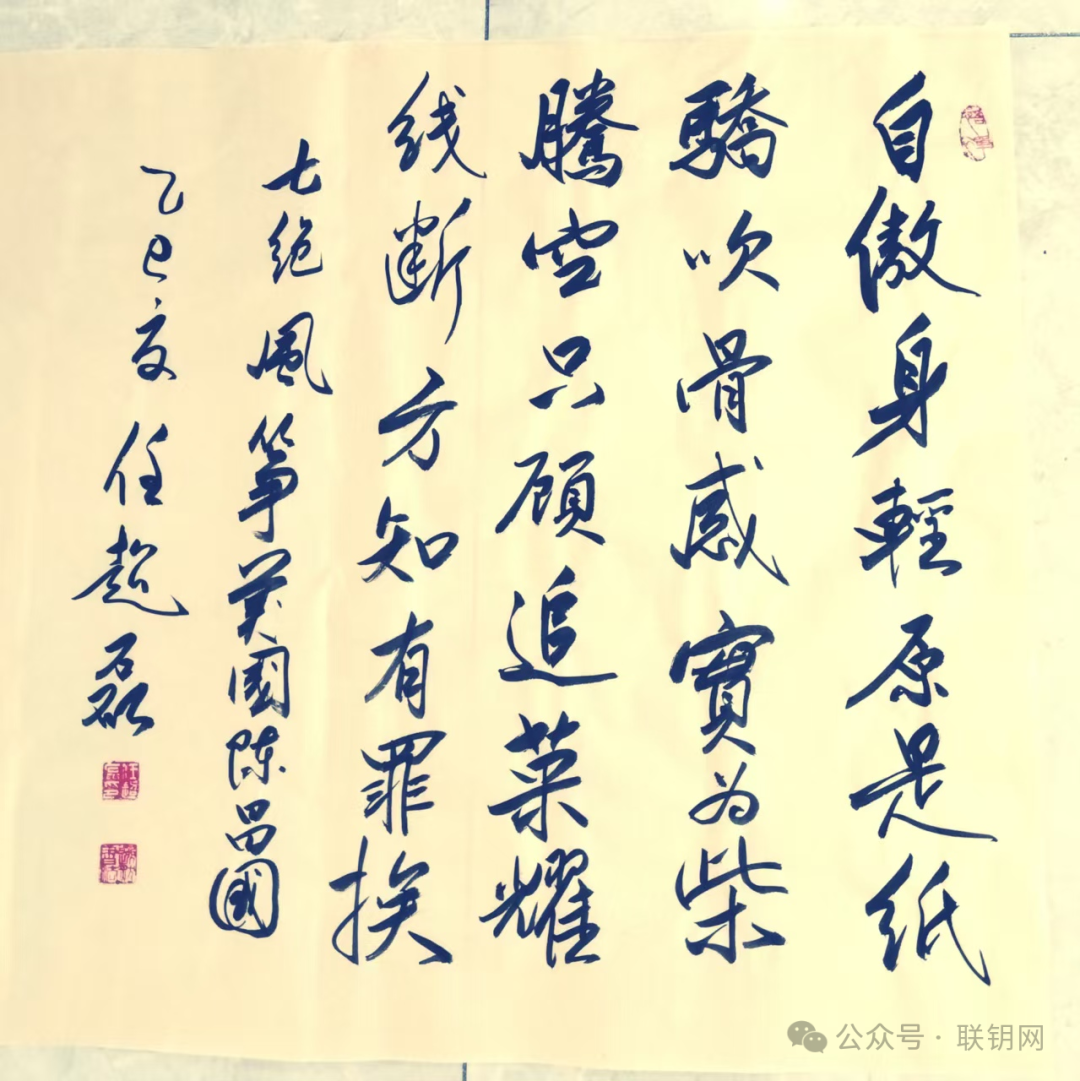 自傲身輕原是纸
驕吹骨感實为柴
騰空只顾追菜耀
线断方知有罪挨
七绝风筝美國陈昌國
乙巳夏任超磊
公众号·联钥网